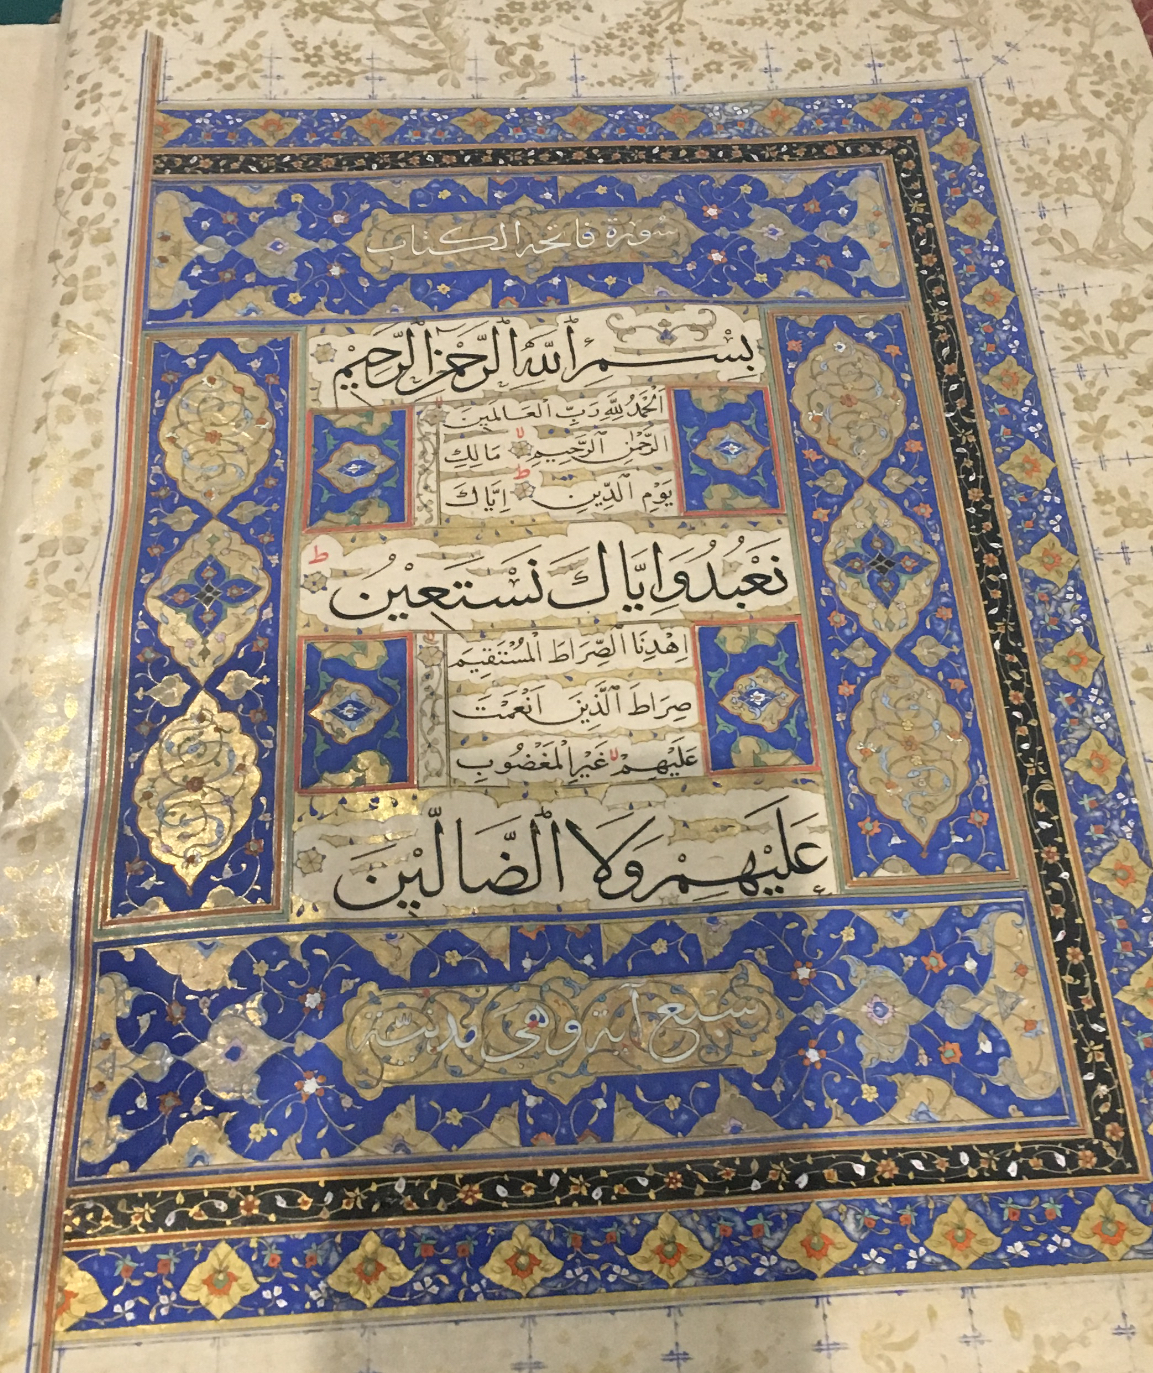 سورة فاتحة الكتاب
بِسْمِ اللَّهِ الرَّحْمٰنِ الرَّحِيْمِ
اَلْحَمْدُ لِلّٰهِ رَبِّ الْعَالَمِينَ
الرَّحْمٰنِ الرَّحِيمِ لا مَالِكِ
يَوْمِ الدِّينِ ط اِيَّاكَ
نَعْبُدُ وَاِيَّاكَ نَسْتَعِيْنُ ط
اِهْدِنَا الصِّرَاطَ الْمُسْتَقِيمَ
صِرَاطَ الَّذِينَ اَنْعَمْتَ
عَلَيْهِمْ لا غَيْرِ الْمَغْضُوبِ
عَلَيْهِمْ وَلَا الضَّالِّيْنَ
سبع آية وهى مدنيّة